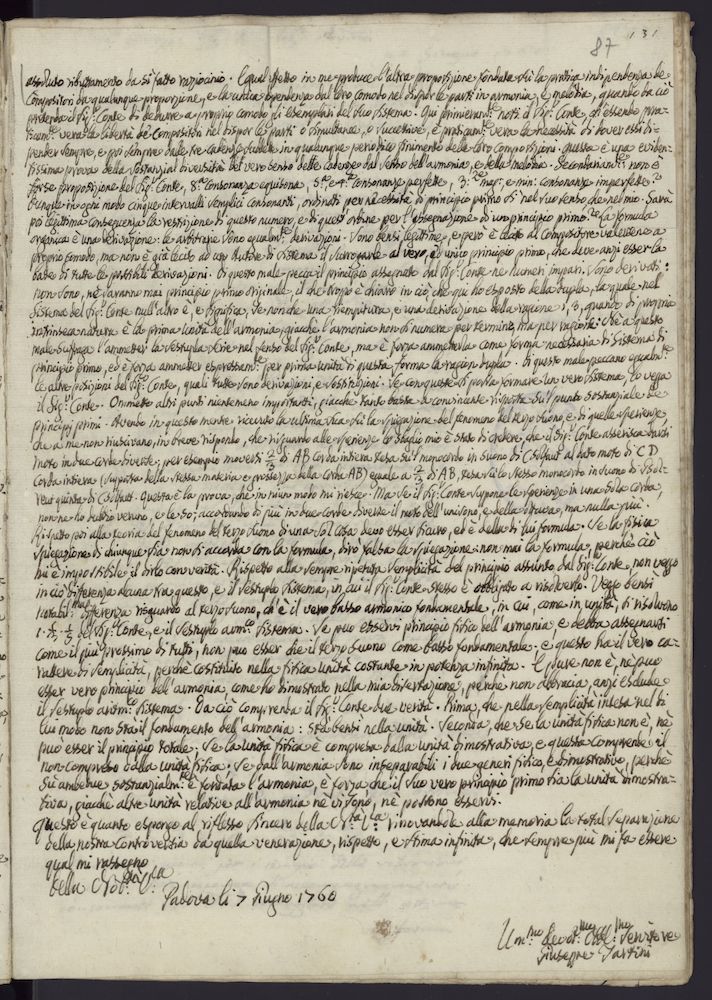 131
87
assoluto rifiutamento da sì fatto raziocinio. Egual effetto in me produce l'altra proposizione fondata su la pratica indipendenza de
Compositori da qualunque proporzione, e la unica dipendenza dal loro comodo nel dispor le parti in armonia, e melodia, quando da ciò
pretenda il Sig.r Conte di dedurre a proprio comodo gli esemplari del suo sistema. Qui primieram.te noti il Sig.r Conte, ch'essendo pra-
ticam.te vera la libertà de Compositori nel dispor le parti o simultanee, o successive, è praticam.te vera la necessità di dover essi di-
pender sempre, e poi sempre dalle tre cadenze suddette in qualunque periodico finimento delle loro composizioni. Questa è una eviden-
tissima prova della sostanzial diversità del vero senso delle cadenze dal senso dell'armonia, e della melodia. Secondariam.te non è
forse proposizione del Sig.r Conte, 8.a consonanza equisona, 5.a e 4.a consonanze perfette, 3.e mag.r, e min.r consonanze imperfette?
Dunque in ogni modo cinque intervalli semplici consonanti, ordinati per necessità di principio primo sì nel suo senso che nel mio. Sarà
poi legitima conseguenza la restrizione di questo numero, e di quest'ordine per l'assegnazione di un principio primo? La formula
organica è una derivazione: le arbitrarie sono egualm.te derivazioni. Sono bensì legitime, e però è lecito al Compositore valersene a
proprio comodo, ma non è già lecito ad un Autore di sistema il surrogarle al vero, ed unico principio primo, che deve anzi esser la
base di tutte le possibili derivazioni. Di questo male pecca il principio assegnato dal Sig.r Conte ne numeri impari. Sono derivati:
non sono, nè saranno mai principio primo originale, il che troppo è chiaro in ciò che qui ho esposto della dupla, la quale nel
sistema del Sig.r Conte null'altro è, e significa, se non che una riempitura, e una derivazione della ragione 1, 3, quando di propria
intrinseca natura è la prima unità dell'armonia, giacchè l'armonia non si numera per termini, ma per ragioni. Nè a questo
male suffraga l'ammetter la sestupla serie nel senso del Sig.r Conte, ma è forza ammetterla come forma necessaria di sistema di
principio primo, ed è forza ammetter espressam.te per prima unità di questa forma la ragion dupla. Di questo male peccano egualm.te
le altre posizioni del Sig.r Conte, quali tutte sono derivazioni, e sostituzioni. Se con queste si possa formare un vero sistema, lo vegga
il Sig.r Conte. Ommetto altri punti nientemeno importanti, giacchè tanto basta a convincente risposta sul punto sostanziale de
principj primi. Avendo in questo mentre ricevuto la ultima sua su la spiegazione del fenomeno del terzo suono, e di quelle sperienze
che a me non riuscivano, in breve rispondo, che riguardo alle sperienze lo sbaglio mio è stato di credere, che il Sig.r Conte asserisca darsi
i moti in due corde diverse; per esempio moversi 2/3 di AB corda intiera tesa sul monocordo in suono di Csolfaut al dato moto di C D
corda intiera (supposta della stessa materia e grossezza della corda AB) eguale a 2/3 d'AB, tesa su lo stesso monocordo in suono di Gsol-
reut quinta di Csolfaut. Questa è la prova, che in niun modo mi riesce. Ma se il Sig.r Conte suppone le sperienze in una sola corda,
non ne ho dubbio veruno, e le so; accordando di più in due corde diverse il moto dell'unisono, e della ottava, ma nulla più.
Rispetto poi alla teoria del fenomeno del terzo suono di una sol cosa devo esser sicuro, ed è della di lui formula. Se la fisica
spiegazione di chiunque sia non si accorda con la formula, dirò falsa la spiegazione, non mai la formula, perchè ciò
mi è impossibile il dirlo con verità. Rispetto alla sempre ripetuta semplicità del principio assunto dal Sig.r Conte, non veggo
in ciò differenza alcuna tra questo, e il sestuplo sistema, in cui il Sig.r Conte stesso è obbligato a risolverlo. Veggo bensì
notabil.ma differenza riguardo al terzo suono, ch'è il vero basso armonico fondamentale, in cui, come in unità, si risolvono
1. 1/3. 1/5 del Sig.r Conte, e il sestuplo arm.co sistema. Se può esservi principio fisico dell'armonia, e debba assegnarsi
come il più prossimo di tutti, non può esser che il terzo suono come basso fondamentale. e questo ha il vero ca-
rattere di semplicità, perchè costituito nella fisica unità costante in potenza infinita. E pure non è, nè può
esser vero principio dell'armonia, come ho dimostrato nella mia dissertazione, perchè non abbraccia, anzi esclude
il sestuplo aritm.co sistema. Da ciò comprenda il Sig.r Conte due verità. Prima, che nella semplicità intesa nel di
lui modo non stà il fondamento dell'armonia: stà bensì nella unità. Seconda, che se la unità fisica non è, nè
può esser il principio totale. Se la unità fisica è compresa dalla unità dimostrativa, e questa comprende il
non compreso dalla unità fisica. Se dall'armonia sono inseparabili i due generi fisico, e dimostrativo, perchè
su ambedue sostanzialm.te è fondata l'armonia, è forza che il suo vero principio primo sia la unità dimostra-
tiva, giacchè altre unità relative all'armonia nè vi sono, nè possono esservi.
Questo è quanto espongo al riflesso sincero della V.ra rinovandole alla memoria la total separazione
della nostra controversia da quella venerazione, rispetto, e stima infinita, che sempre più mi fa essere
qual mi rassegno
Padova li 7 Giugno 1760
Um.mo Devot.mo Obbl.mo Servitore
Giuseppe Tartini